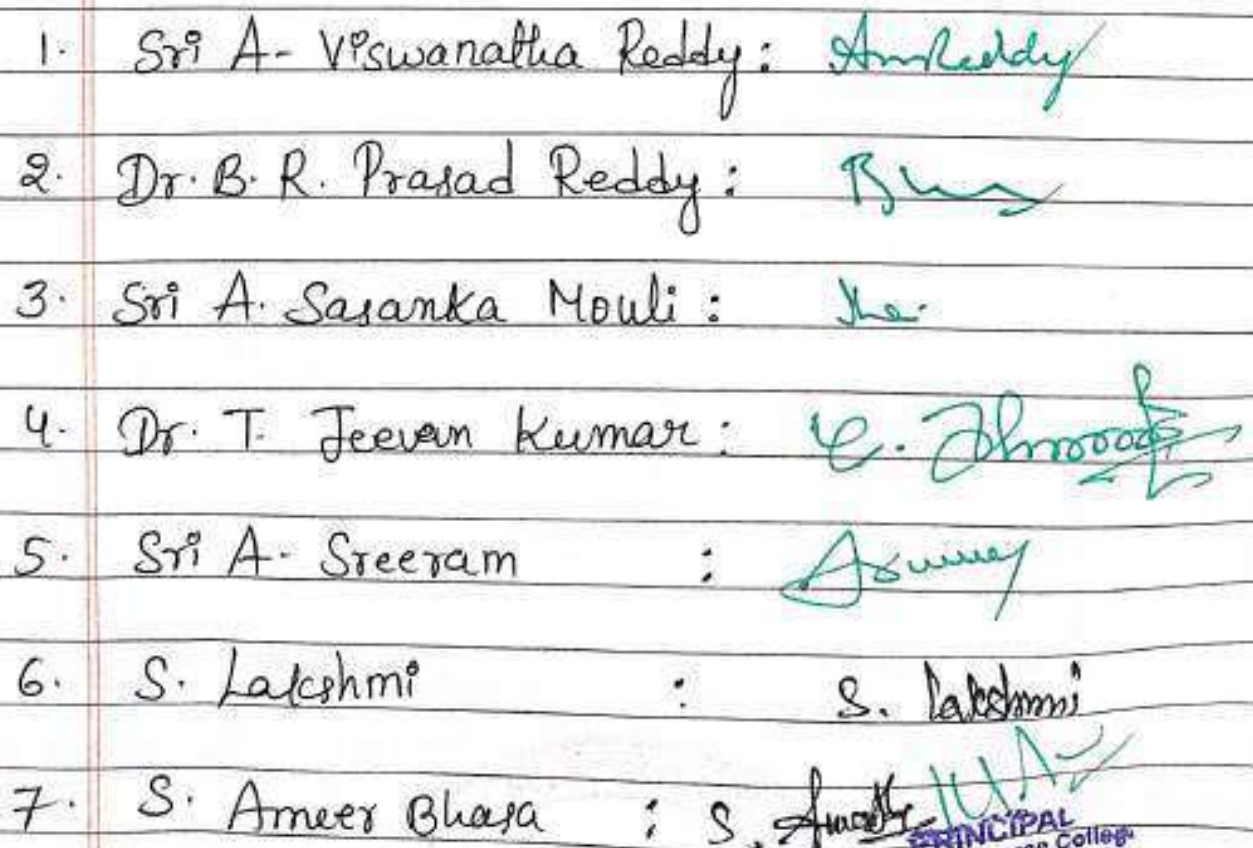 1. Sri A- Viswanatha Reddy : AmReddy
2. Dr. B. R. Prasad Reddy :
3. Sri A. Sasanka Mouli :
4. Dr. T. Jeevan Kumar :
5. Sri A- Sreeram :
6. S. Lakshmi : S. Lakshmi
7. S. Ameer Bhasa : S.
PRINCIPAL
College